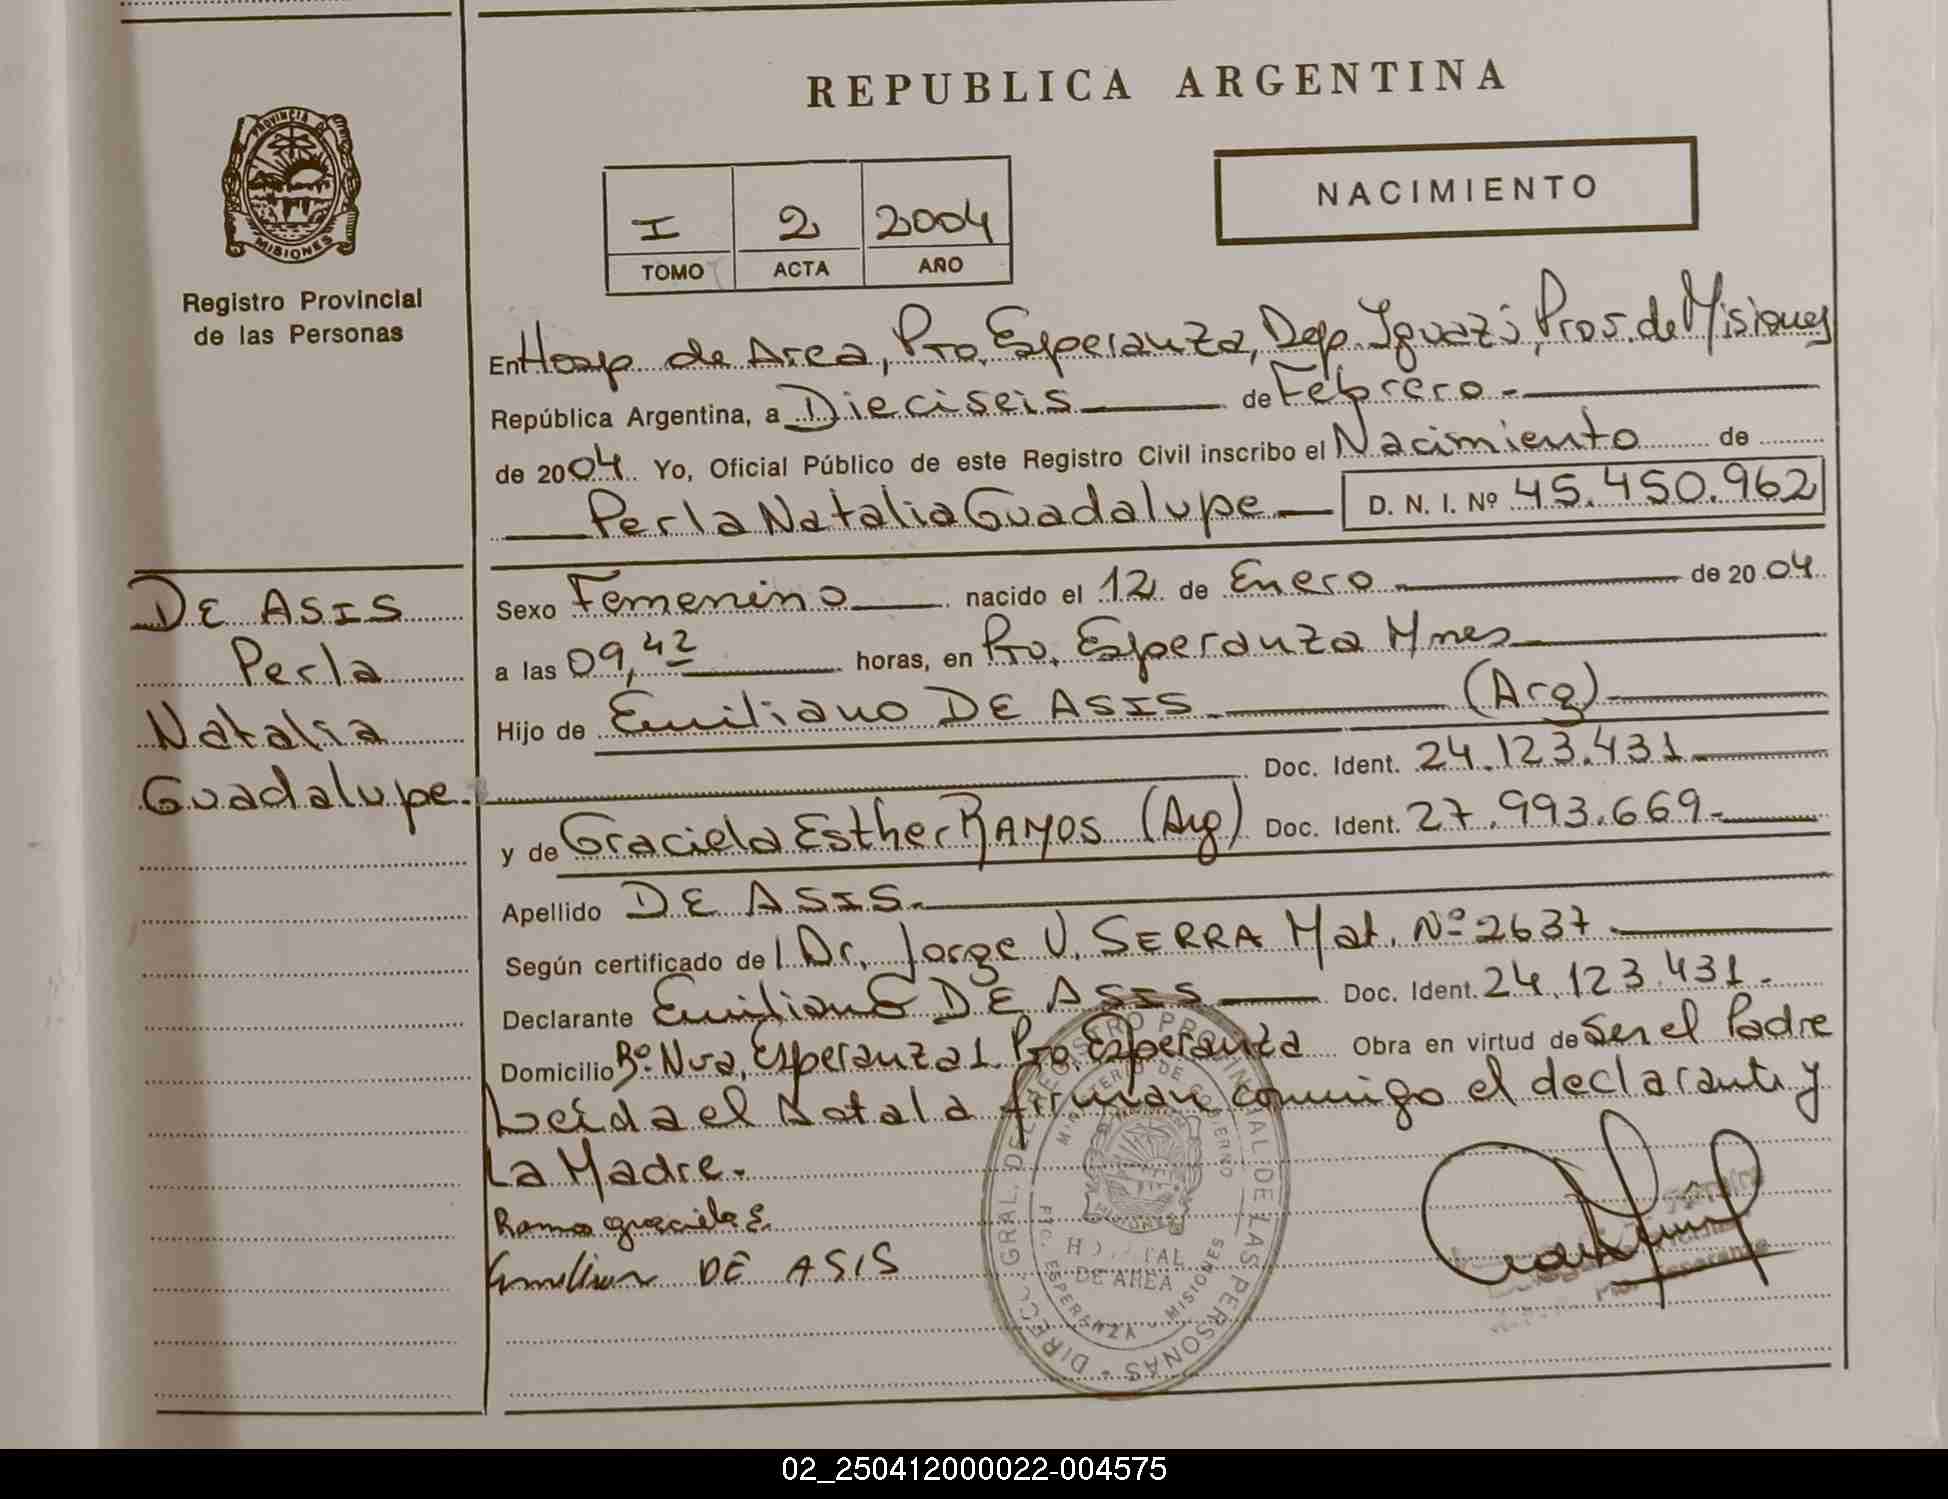 REPUBLICA ARGENTINA
PROVINCIA DE
MISIONES
Registro Provincial
de las Personas
I 2 2004
TOMO ACTA AÑO
NACIMIENTO
En Hosp de Area, Pto. Esperanza, Dep. Iguazú, Prov. de Misiones
República Argentina, a Dieciseis de Febrero
de 2004. Yo, Oficial Público de este Registro Civil inscribo el Nacimiento de
Perla Natalia Guadalupe D. N. I. Nº 45.450.962
DE ASIS
Perla
Natalia
Guadalupe.
Sexo Femenino nacido el 12 de Enero de 2004.
a las 09,42 horas, en Pto. Esperanza Mnes
Hijo de Emiliano DE ASIS (Arg)
Doc. Ident. 24.123.431
y de Graciela Esther RAMOS (Arg) Doc. Ident. 27.993.669.
Apellido DE ASIS.
Según certificado del Dr. Jorge V. SERRA Mat. Nº 2637
Declarante Emiliano DE ASIS Doc. Ident. 24.123.431.
Domicilio Bº. Nva. Esperanza 1. Pto. Esperanza Obra en virtud de Ser el Padre
Leída el Acta la firman conmigo el declarante y
La Madre.
Ramos graciela E.
Emiliano DE ASIS
DIRECC. GRAL. DEL REGISTRO PROVINCIAL DE LAS PERSONAS
MINISTERIO DE GOBIERNO
HOSPITAL
DE AREA
PTO. ESPERANZA - MISIONES
02_250412000022-004575